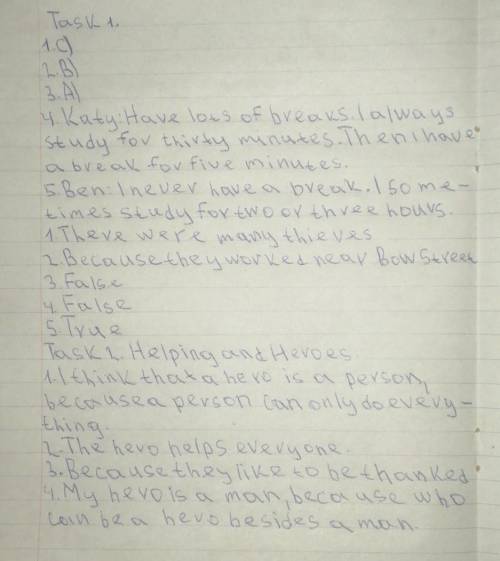 Task 1.
1.C)
2.B)
3.A)
4.Katy: Have lots of breaks. I always
study for thirty minutes. Then I have
a break for five minutes.
5.Ben: I never have a break. I some-
times study for two or three hours.
1.There were many thieves
2.Because they worked near Bow Street
3.False
4.False
5.True
Task 2. Helping and Heroes.
1.I think that a hero is a person,
because a person can only do every-
thing.
2.The hero helps everyone.
3.Because they like to be thanked
4.My hero is a man, because who
can be a hero besides a man.